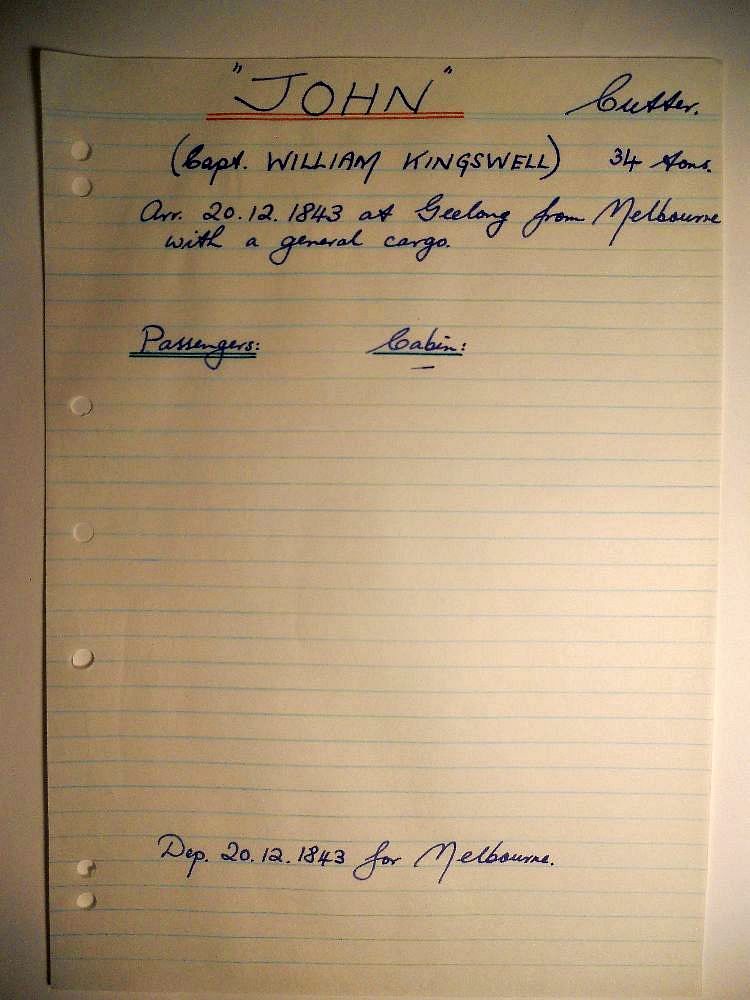 "JOHN" Cutter.
(Capt. WILLIAM KINGSWELL) 34 tons.
Arr. 20.12.1843 at Geelong from Melbourne
with a general cargo.
Passengers: Cabin:
—
Dep. 20.12.1843 for Melbourne.